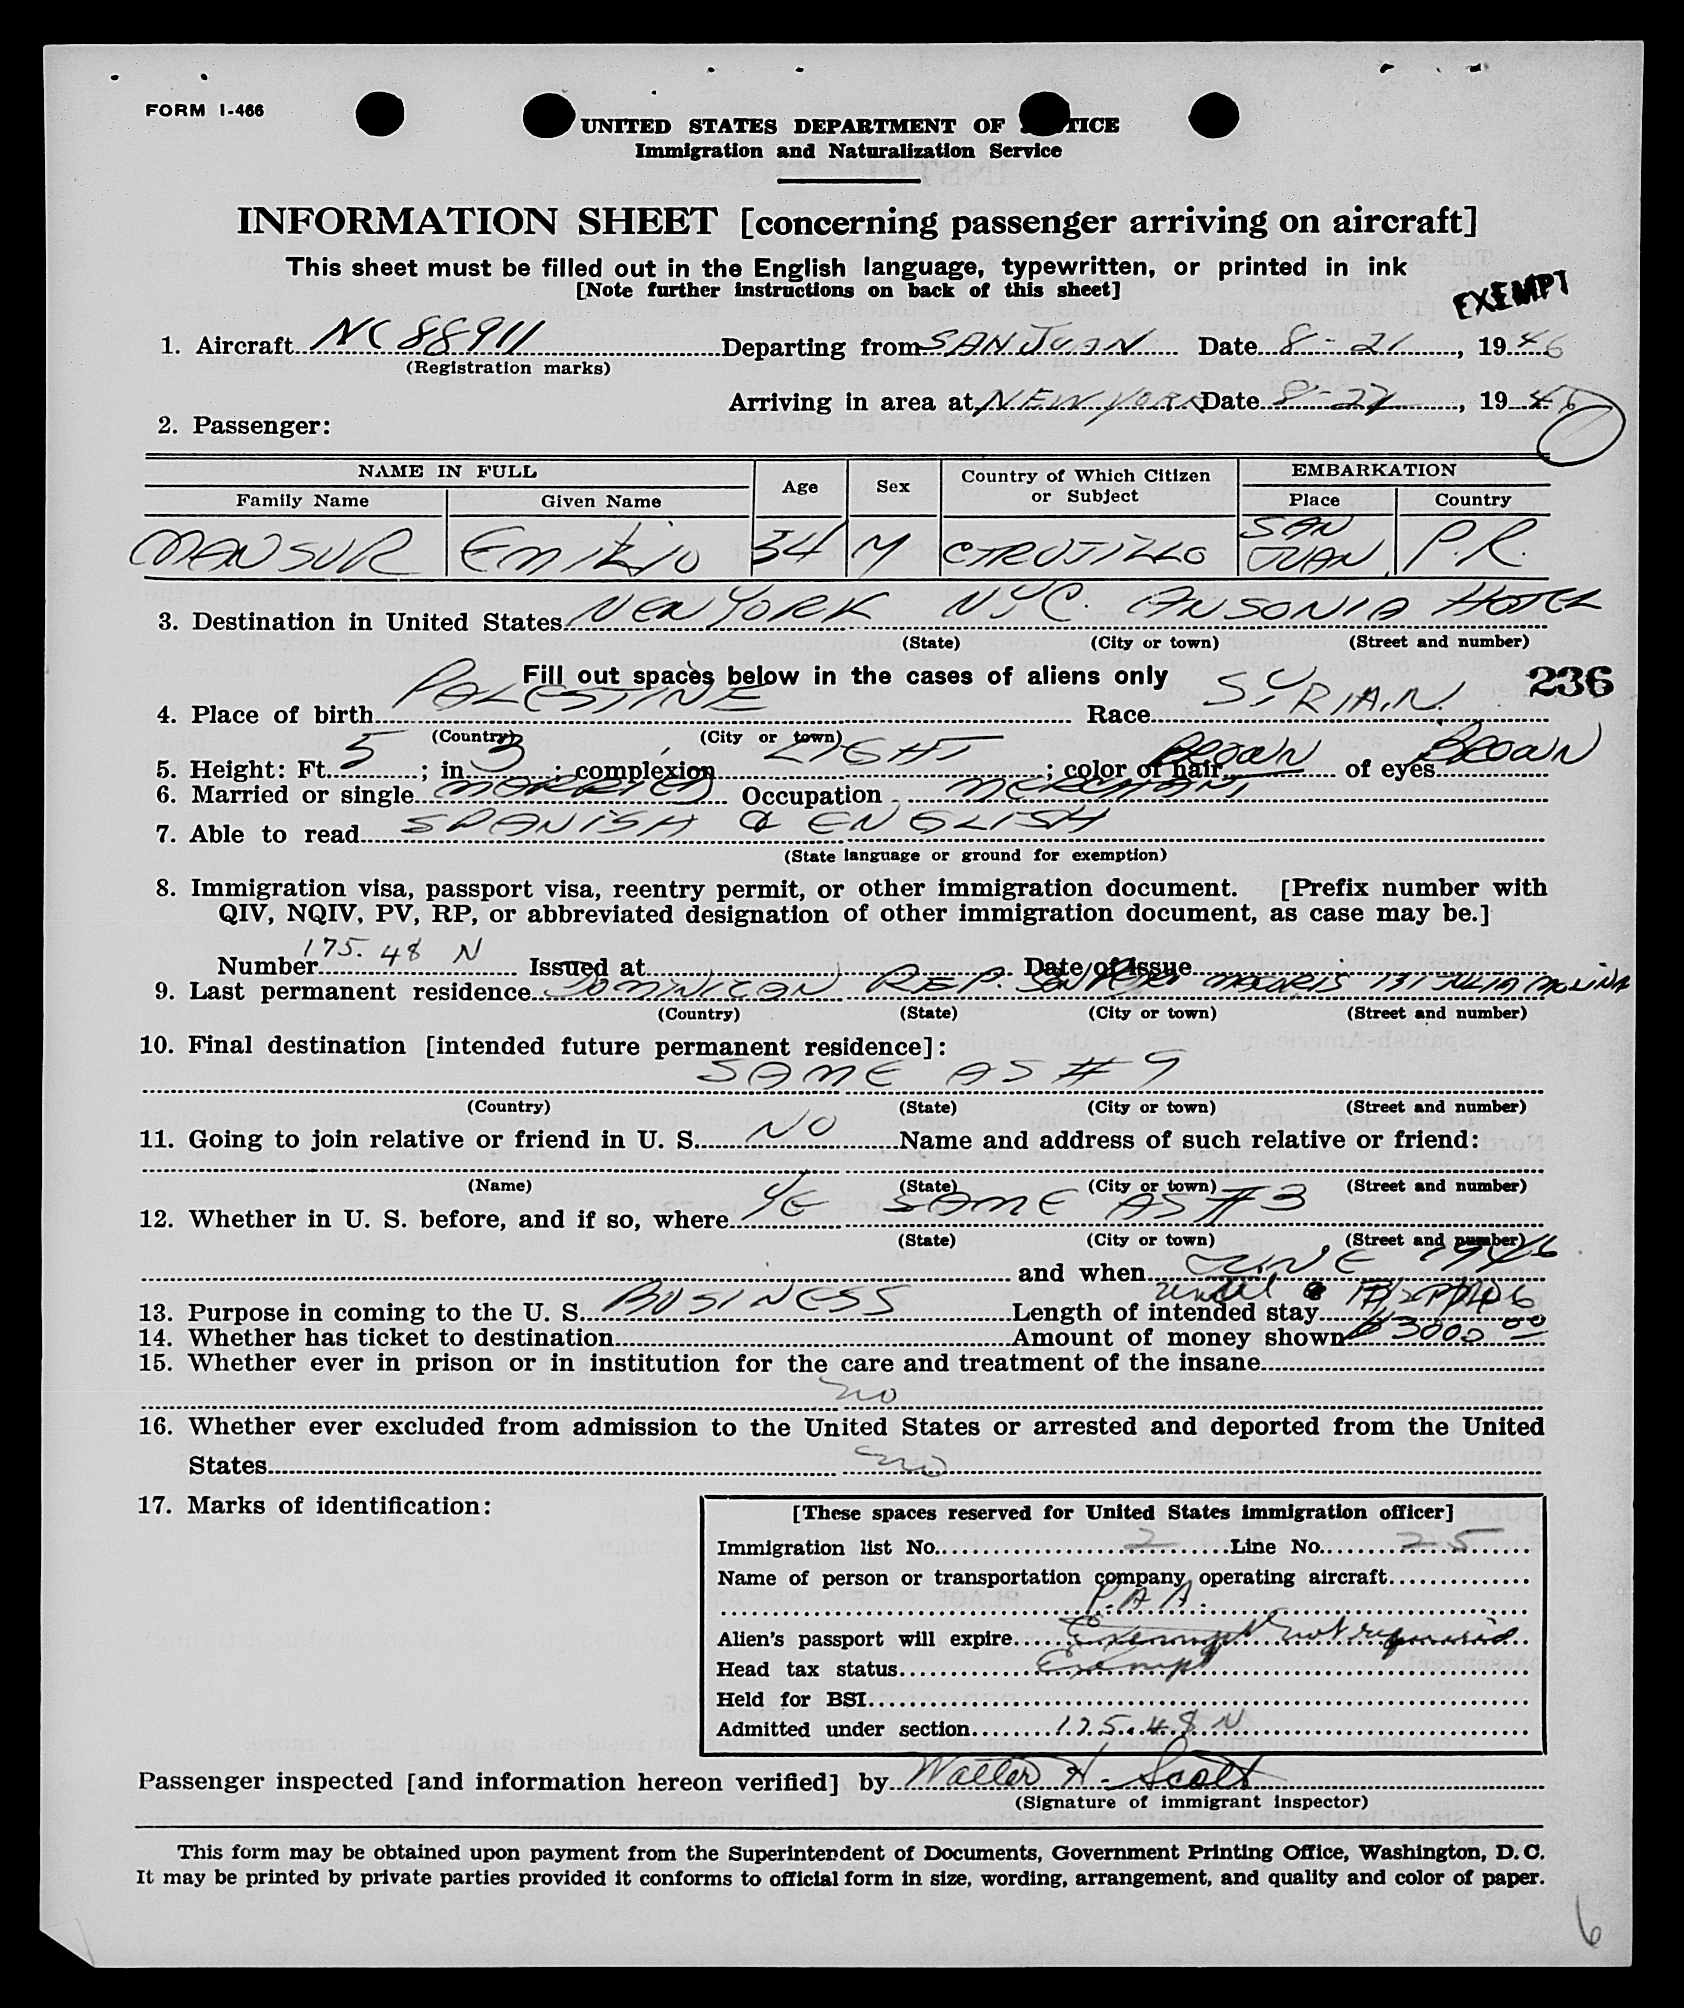 FORM I-466
UNITED STATES DEPARTMENT OF JUSTICE
Immigration and Naturalization Service
INFORMATION SHEET [concerning passenger arriving on aircraft]
This sheet must be filled out in the English language, typewritten, or printed in ink
[Note further instructions on back of this sheet]
EXEMPT
1. Aircraft NC 88911 Departing from SAN JUAN Date 8-21, 1946
(Registration marks)
Arriving in area at NEW YORK Date 8-22, 1946
2. Passenger:
NAME IN FULL Age Sex Country of Which Citizen or Subject EMBARKATION
Family Name Given Name Place Country
MANSUR EMILIO 34 M CTRUJILLO SAN JUAN, P.R.
3. Destination in United States NEW YORK NYC. ANSONIA HOTEL
(State) (City or town) (Street and number)
Fill out spaces below in the cases of aliens only
236
4. Place of birth PALESTINE Race SYRIAN.
(Country) (City or town)
5. Height: Ft. 5; in. 3; complexion LIGHT; color of hair BROWN of eyes BROWN
6. Married or single MARRIED Occupation MERCHANT
7. Able to read SPANISH & ENGLISH
(State language or ground for exemption)
8. Immigration visa, passport visa, reentry permit, or other immigration document. [Prefix number with
QIV, NQIV, PV, RP, or abbreviated designation of other immigration document, as case may be.]
Number 175.48 N Issued at Date of Issue
9. Last permanent residence DOMINICAN REP. MACORIS 131 JULIA MOLINA
(Country) (State) (City or town) (Street and number)
10. Final destination [intended future permanent residence]:
SAME AS #9
(Country) (State) (City or town) (Street and number)
11. Going to join relative or friend in U. S. NO Name and address of such relative or friend:
(Name) (State) (City or town) (Street and number)
12. Whether in U. S. before, and if so, where YE SAME AS #3
(State) (City or town) (Street and number)
and when JUNE 1946
13. Purpose in coming to the U. S. BUSINESS Length of intended stay until
14. Whether has ticket to destination Amount of money shown $3000.00
15. Whether ever in prison or in institution for the care and treatment of the insane
no
16. Whether ever excluded from admission to the United States or arrested and deported from the United
States no
17. Marks of identification:
[These spaces reserved for United States immigration officer]
Immigration list No. 2 Line No. 25
Name of person or transportation company operating aircraft
P.A.A.
Alien's passport will expire Exempt not required
Head tax status Exempt
Held for BSI
Admitted under section 175.48 N
Passenger inspected [and information hereon verified] by Walter H. Scott
(Signature of immigrant inspector)
This form may be obtained upon payment from the Superintendent of Documents, Government Printing Office, Washington, D. C.
It may be printed by private parties provided it conforms to official form in size, wording, arrangement, and quality and color of paper.
6